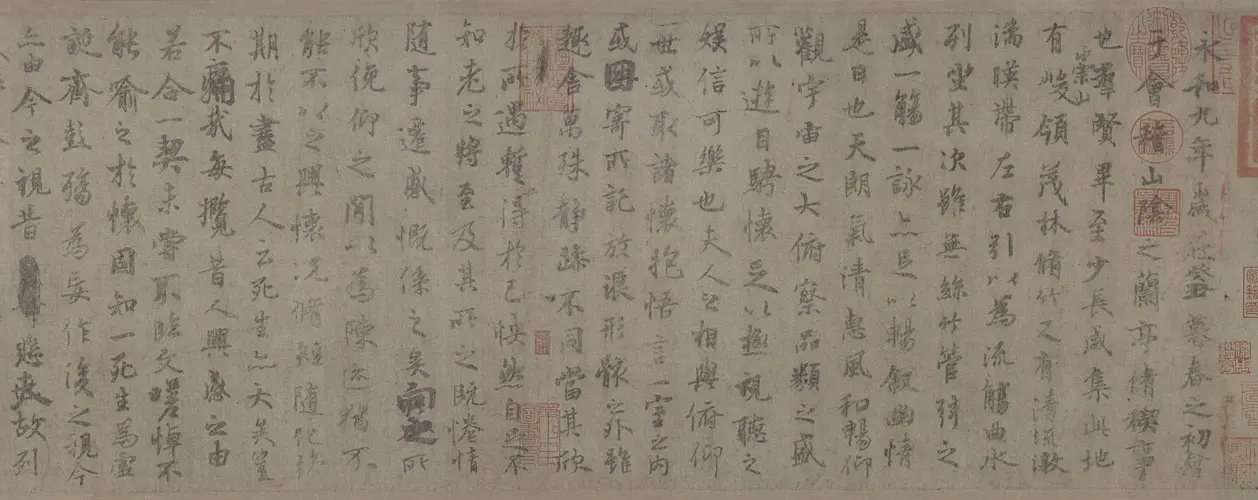 永和九年歲在癸丑暮春之初會
于會稽山陰之蘭亭脩稧事
也羣賢畢至少長咸集此地
有崇山峻領茂林脩竹又有清流激
湍暎帶左右引以為流觴曲水
列坐其次雖無絲竹管弦之
盛一觴一詠亦足以暢叙幽情
是日也天朗氣清惠風和暢仰
觀宇宙之大俯察品類之盛
所以遊目騁懷足以極視聽之
娛信可樂也夫人之相與俯仰
一世或取諸懷抱悟言一室之內
或因寄所託放浪形骸之外雖
趣舍萬殊靜躁不同當其欣
於所遇蹔得於己怏然自足不
知老之將至及其所之既惓情
隨事遷感慨係之矣向之所
欣俛仰之閒以為陳迹猶不
能不以之興懷況脩短隨化終
期於盡古人云死生亦大矣豈
不痛哉每攬昔人興感之由
若合一契未嘗不臨文嗟悼不
能喻之於懷固知一死生為虛
誕齊彭殤為妄作後之視今
亦由今之視昔悲夫故列